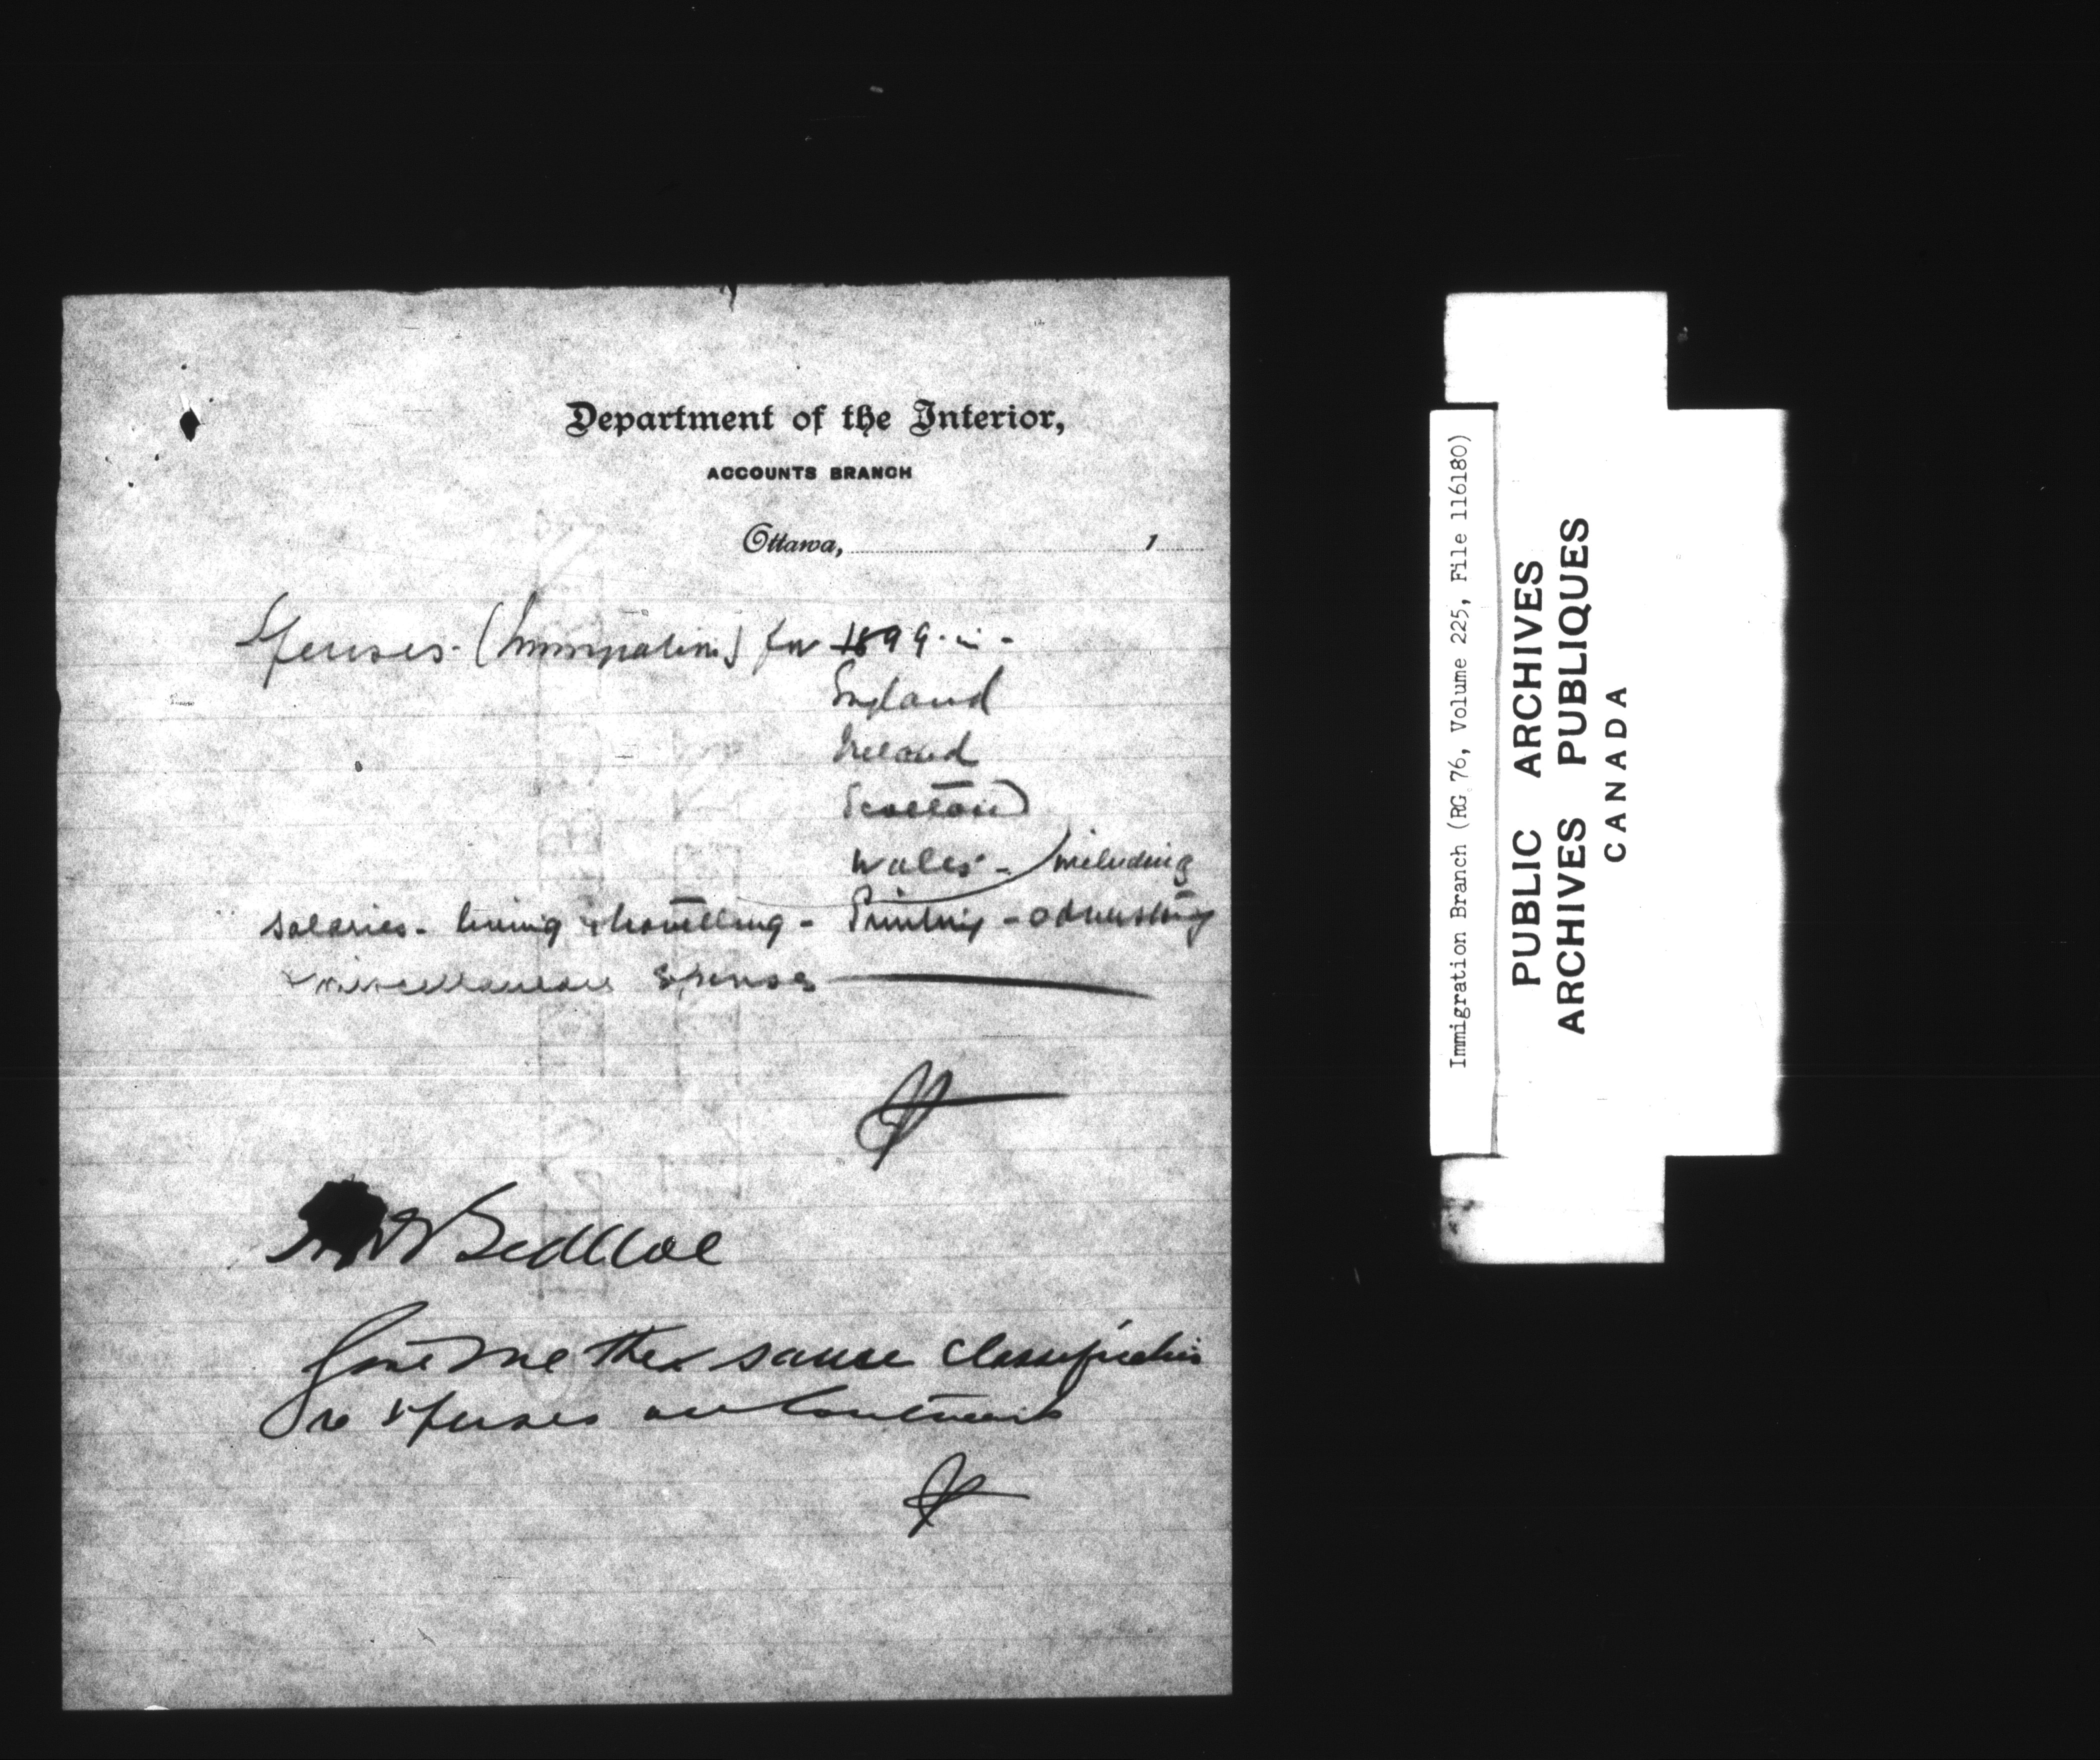 Department of the Interior,
ACCOUNTS BRANCH
Ottawa, 1
Expenses (Immigration) for 1899 in -
England
Ireland
Scotland
Wales - including
salaries - living & travelling - Printing - advertising
& miscellaneous Expenses
Mr Beddoe
Give me the same classification
re Expenses on Continent
Immigration Branch (RG 76, Volume 225, File 116180)
PUBLIC ARCHIVES
ARCHIVES PUBLIQUES
CANADA